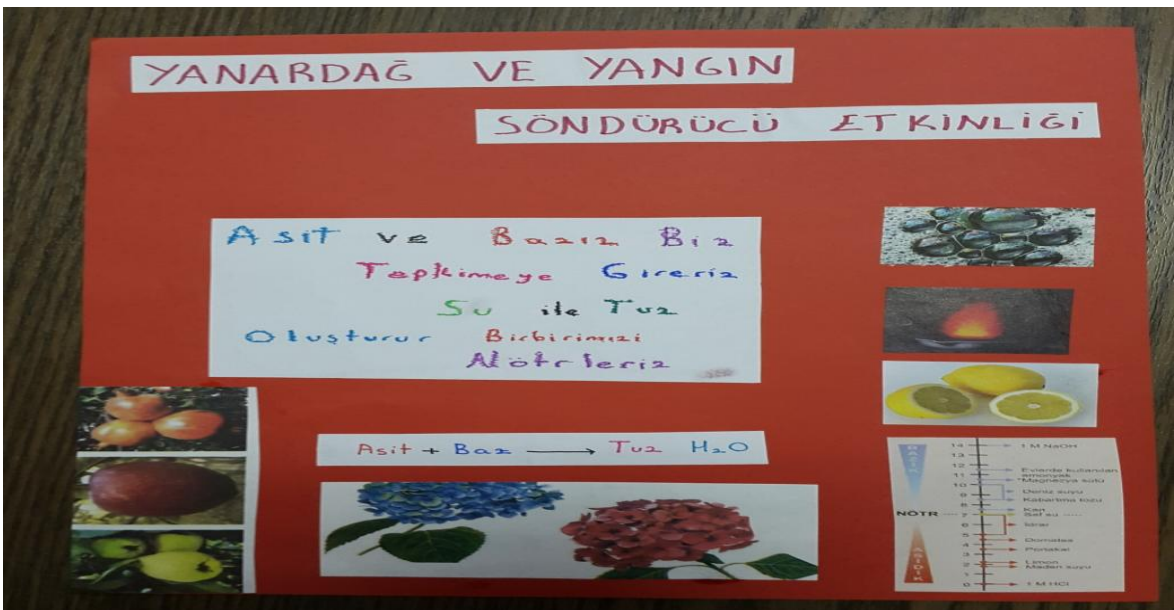 YANARDAĞ VE YANGIN
SÖNDÜRÜCÜ ETKİNLİĞİ
Asit ve Bazız Biz
Tepkimeye Gireriz
Su ile Tuz
Oluşturur Birbirimizi
Nötrleriz
Asit + Baz → Tuz H₂O
BAZİK
NÖTR
ASİDİK
14
13
12
11
10
9
8
7
6
5
4
3
2
1
0
1 M NaOH
Evlerde kullanılan
amonyak
Magnezya sütü
Deniz suyu
Kabartma tozu
Kan
Saf su
İdrar
Domates
Portakal
Limon
Maden suyu
1 M HCl